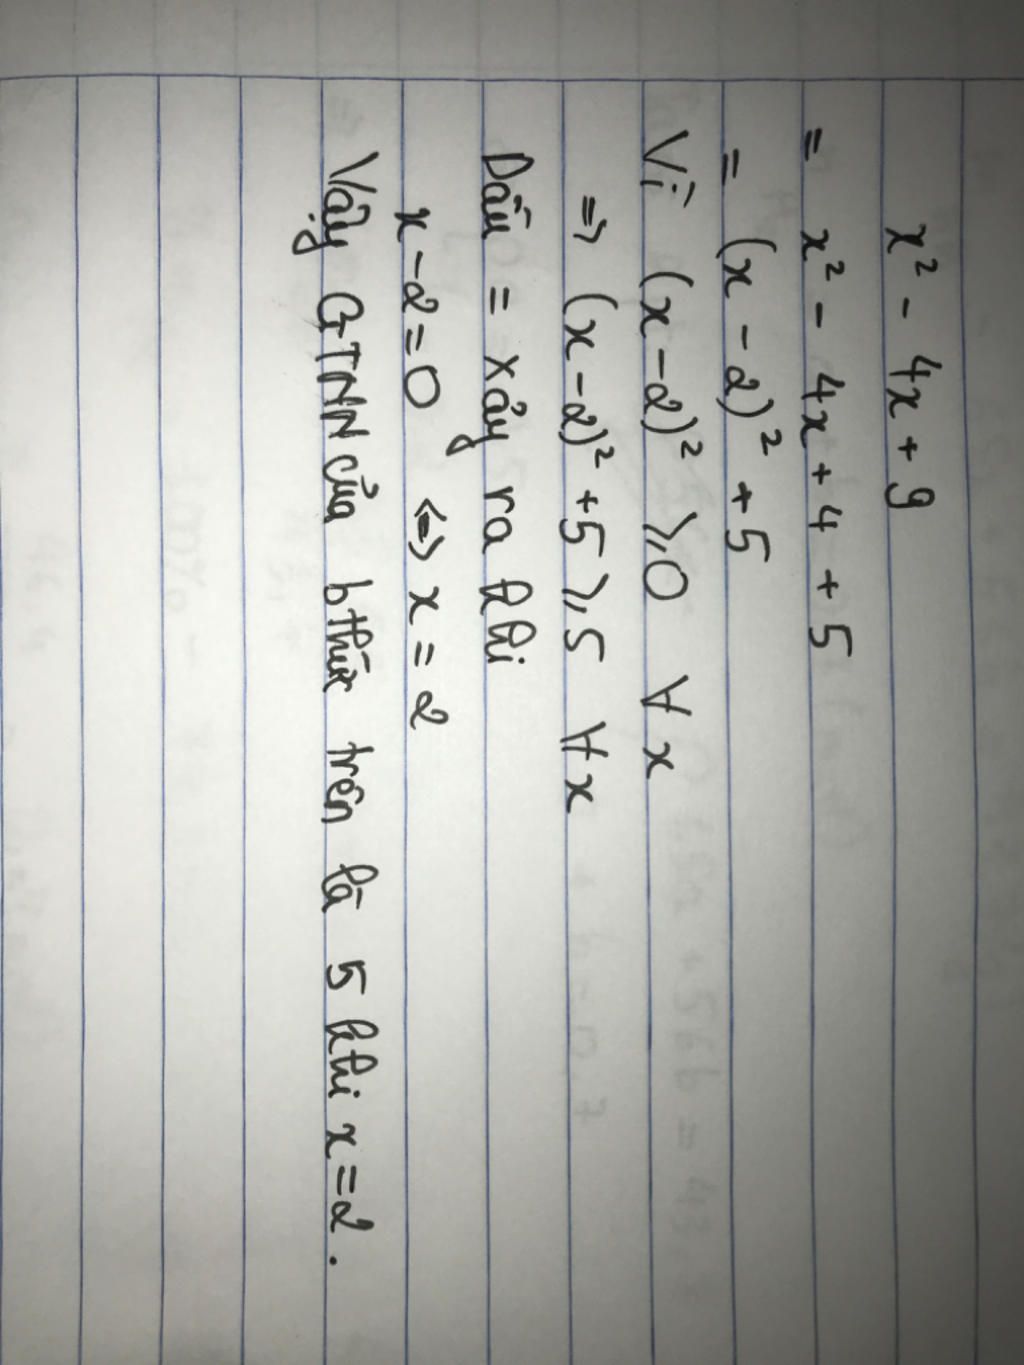 x² - 4x + 9
= x² - 4x + 4 + 5
= (x - 2)² + 5
Vì (x - 2)² ⩾ 0 ∀ x
⇒ (x - 2)² + 5 ⩾ 5 ∀ x
Dấu = xảy ra khi
x - 2 = 0 ⇔ x = 2
Vậy GTNN của bthức trên là 5 khi x = 2.